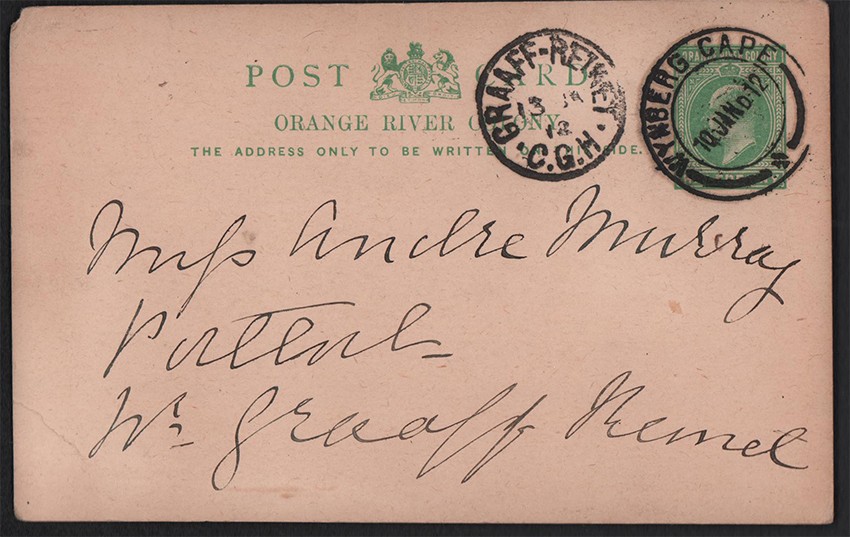 POST CARD
ORANGE RIVER COLONY
THE ADDRESS ONLY TO BE WRITTEN ON THIS SIDE.
GRAAFF-REINET
13 JA
12
C.G.H.
WYNBERG CAPE
10 JAN 12
Miss Andre Murray
Nr Graaff Reinet